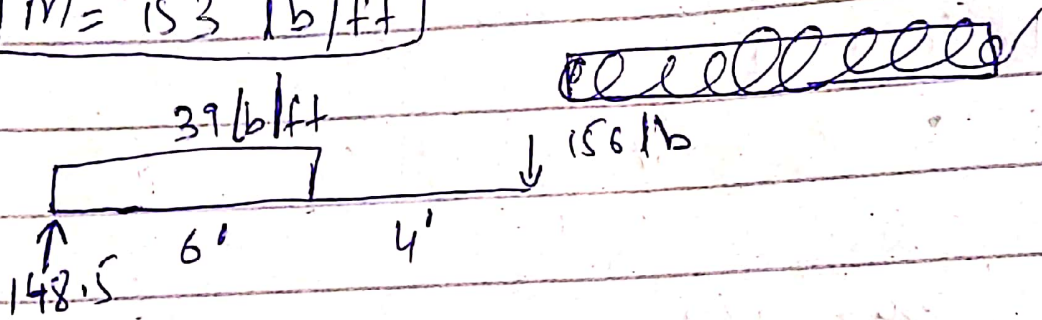 M= 153 lb/ft
39 lb/ft
156 lb
6' 4'
148.5